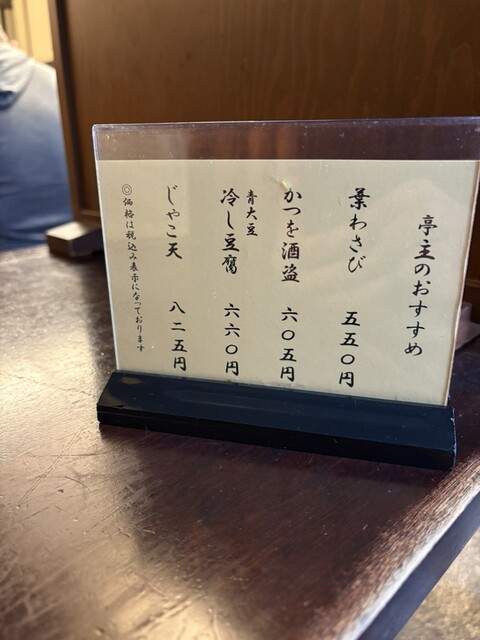 亭主のおすすめ
葉わさび 五五〇円
かつを酒盗 六〇五円
青大豆
冷し豆腐 六六〇円
じゃこ天 八二五円
◎価格は税込み表示になっております